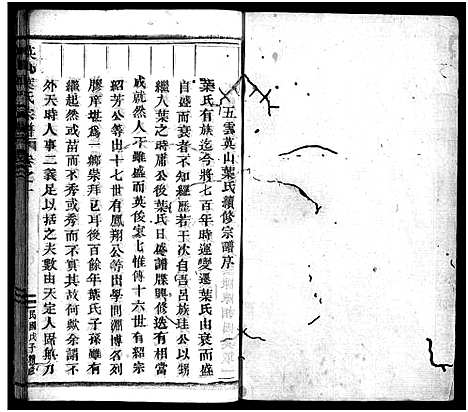 五雲英山葉氏續修宗譜序
葉氏有族迄今將七百年時運變遷葉氏由衰而盛
自盛而衰者不知經歷若干次自呂尾族珪公以甥
繼入葉之時庸公後葉氏日盛譜牒興修造有相當
成就然人丁雖盛而英俊家七惟傳十六世有紹宗
紹芳公等出十七世有鳳翔公等出學問淵博名列
膠庠堪為一鄉崇拜已耳後百餘年葉氏子孫雖有
繼起然或苗而不秀或秀而不實其故何歟余讀內
外天時人事二義足以括之夫數由天定人固無力
英山葉氏宗譜 卷之一
民國戊子續修